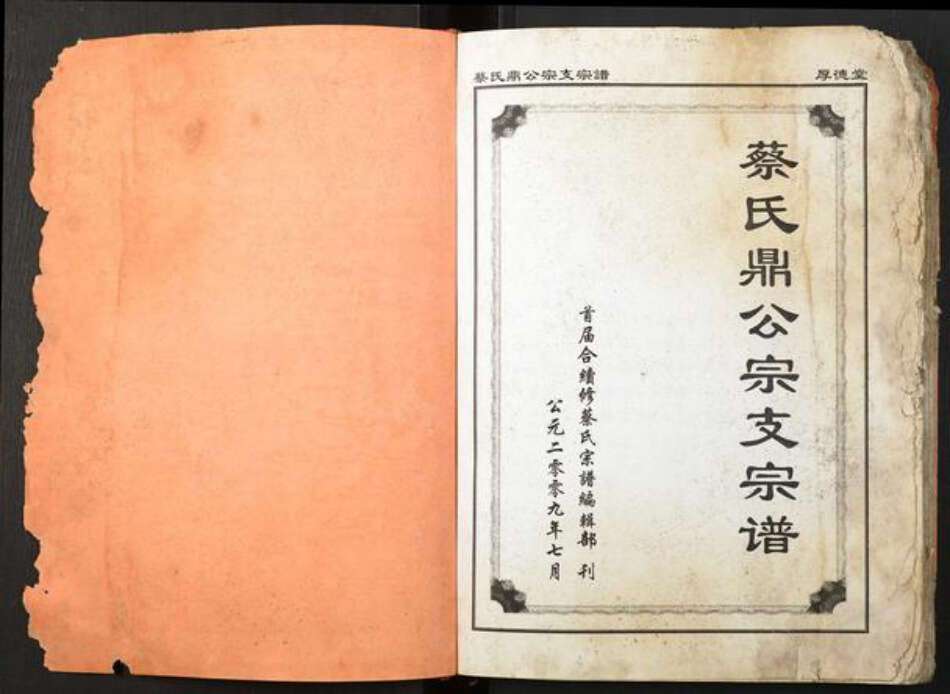 蔡氏鼎公宗支宗譜
厚德堂
蔡氏鼎公宗支宗谱
首届合續修蔡氏宗譜編輯部 刊
公元二零零九年七月